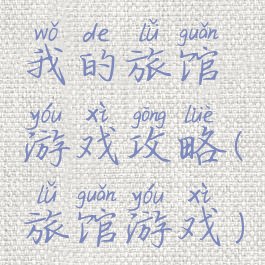 wǒ de lǚ guǎn
我的旅馆
yóu xì gōng lüè
游戏攻略(
lǚ guǎn yóu xì
旅馆游戏)